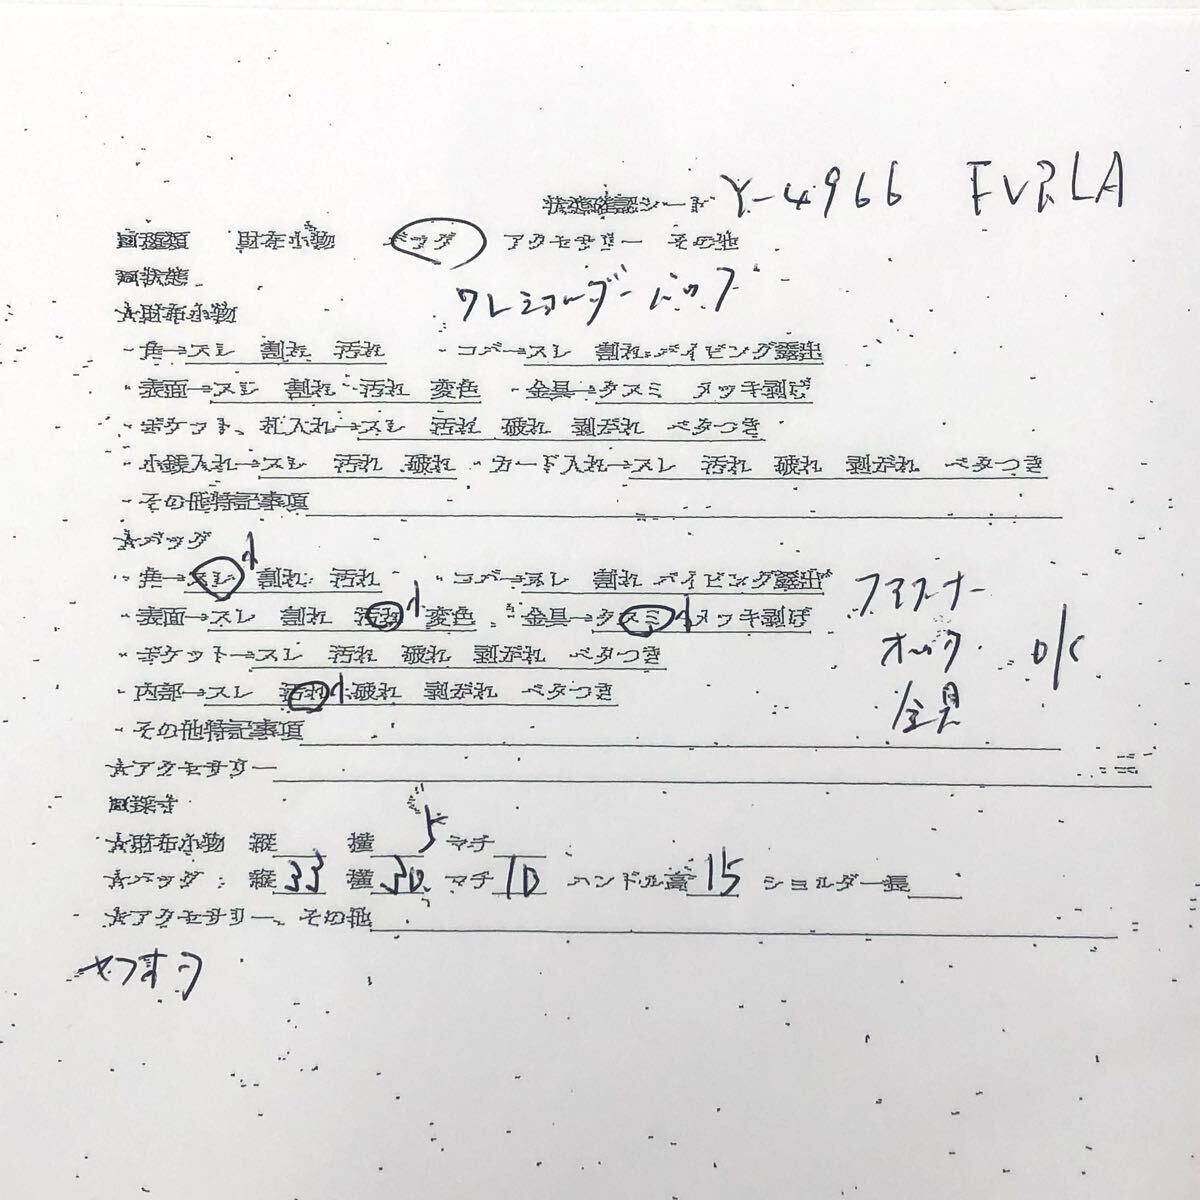 状態確認シート Y-4966 FURLA
■種類 財布小物 バッグ アクセサリー その他
■状態
ワンショルダーバッグ
☆財布小物
・角→スレ 割れ 汚れ ・コバ→スレ 割れ パイピング露出
・表面→スレ 割れ 汚れ 変色 ・金具→クスミ メッキ剥げ
・ポケット、札入れ→スレ 汚れ 破れ 剥がれ ベタつき
・小銭入れ→スレ 汚れ 破れ ・カード入れ→スレ 汚れ 破れ 剥がれ ベタつき
・その他特記事項
☆バッグ
・角→スレ 小 割れ 汚れ ・コバ→スレ 割れ パイピング露出
・表面→スレ 割れ 汚れ 小 変色 ・金具→クスミ 小 メッキ剥げ
ファスナー
・ポケット→スレ 汚れ 破れ 剥がれ ベタつき
ホック O/K
・内部→スレ 汚れ 小 破れ 剥がれ ベタつき
金具
・その他特記事項
☆アクセサリー
■採寸
☆財布小物 縦 横 マチ
5
☆バッグ：縦33 横30 マチ10 ハンドル高15 ショルダー長
☆アクセサリー、その他
ヤフオク